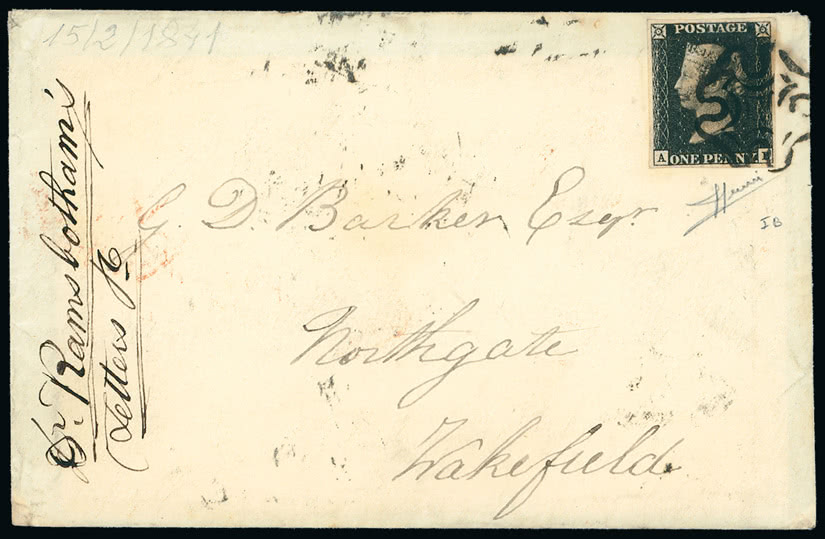 15/2/1841
POSTAGE
A
ONE PENNY
G. D. Barker Esqr.
IB
Northgate
Wakefield.
Dr. Ramsbotham's
Letters